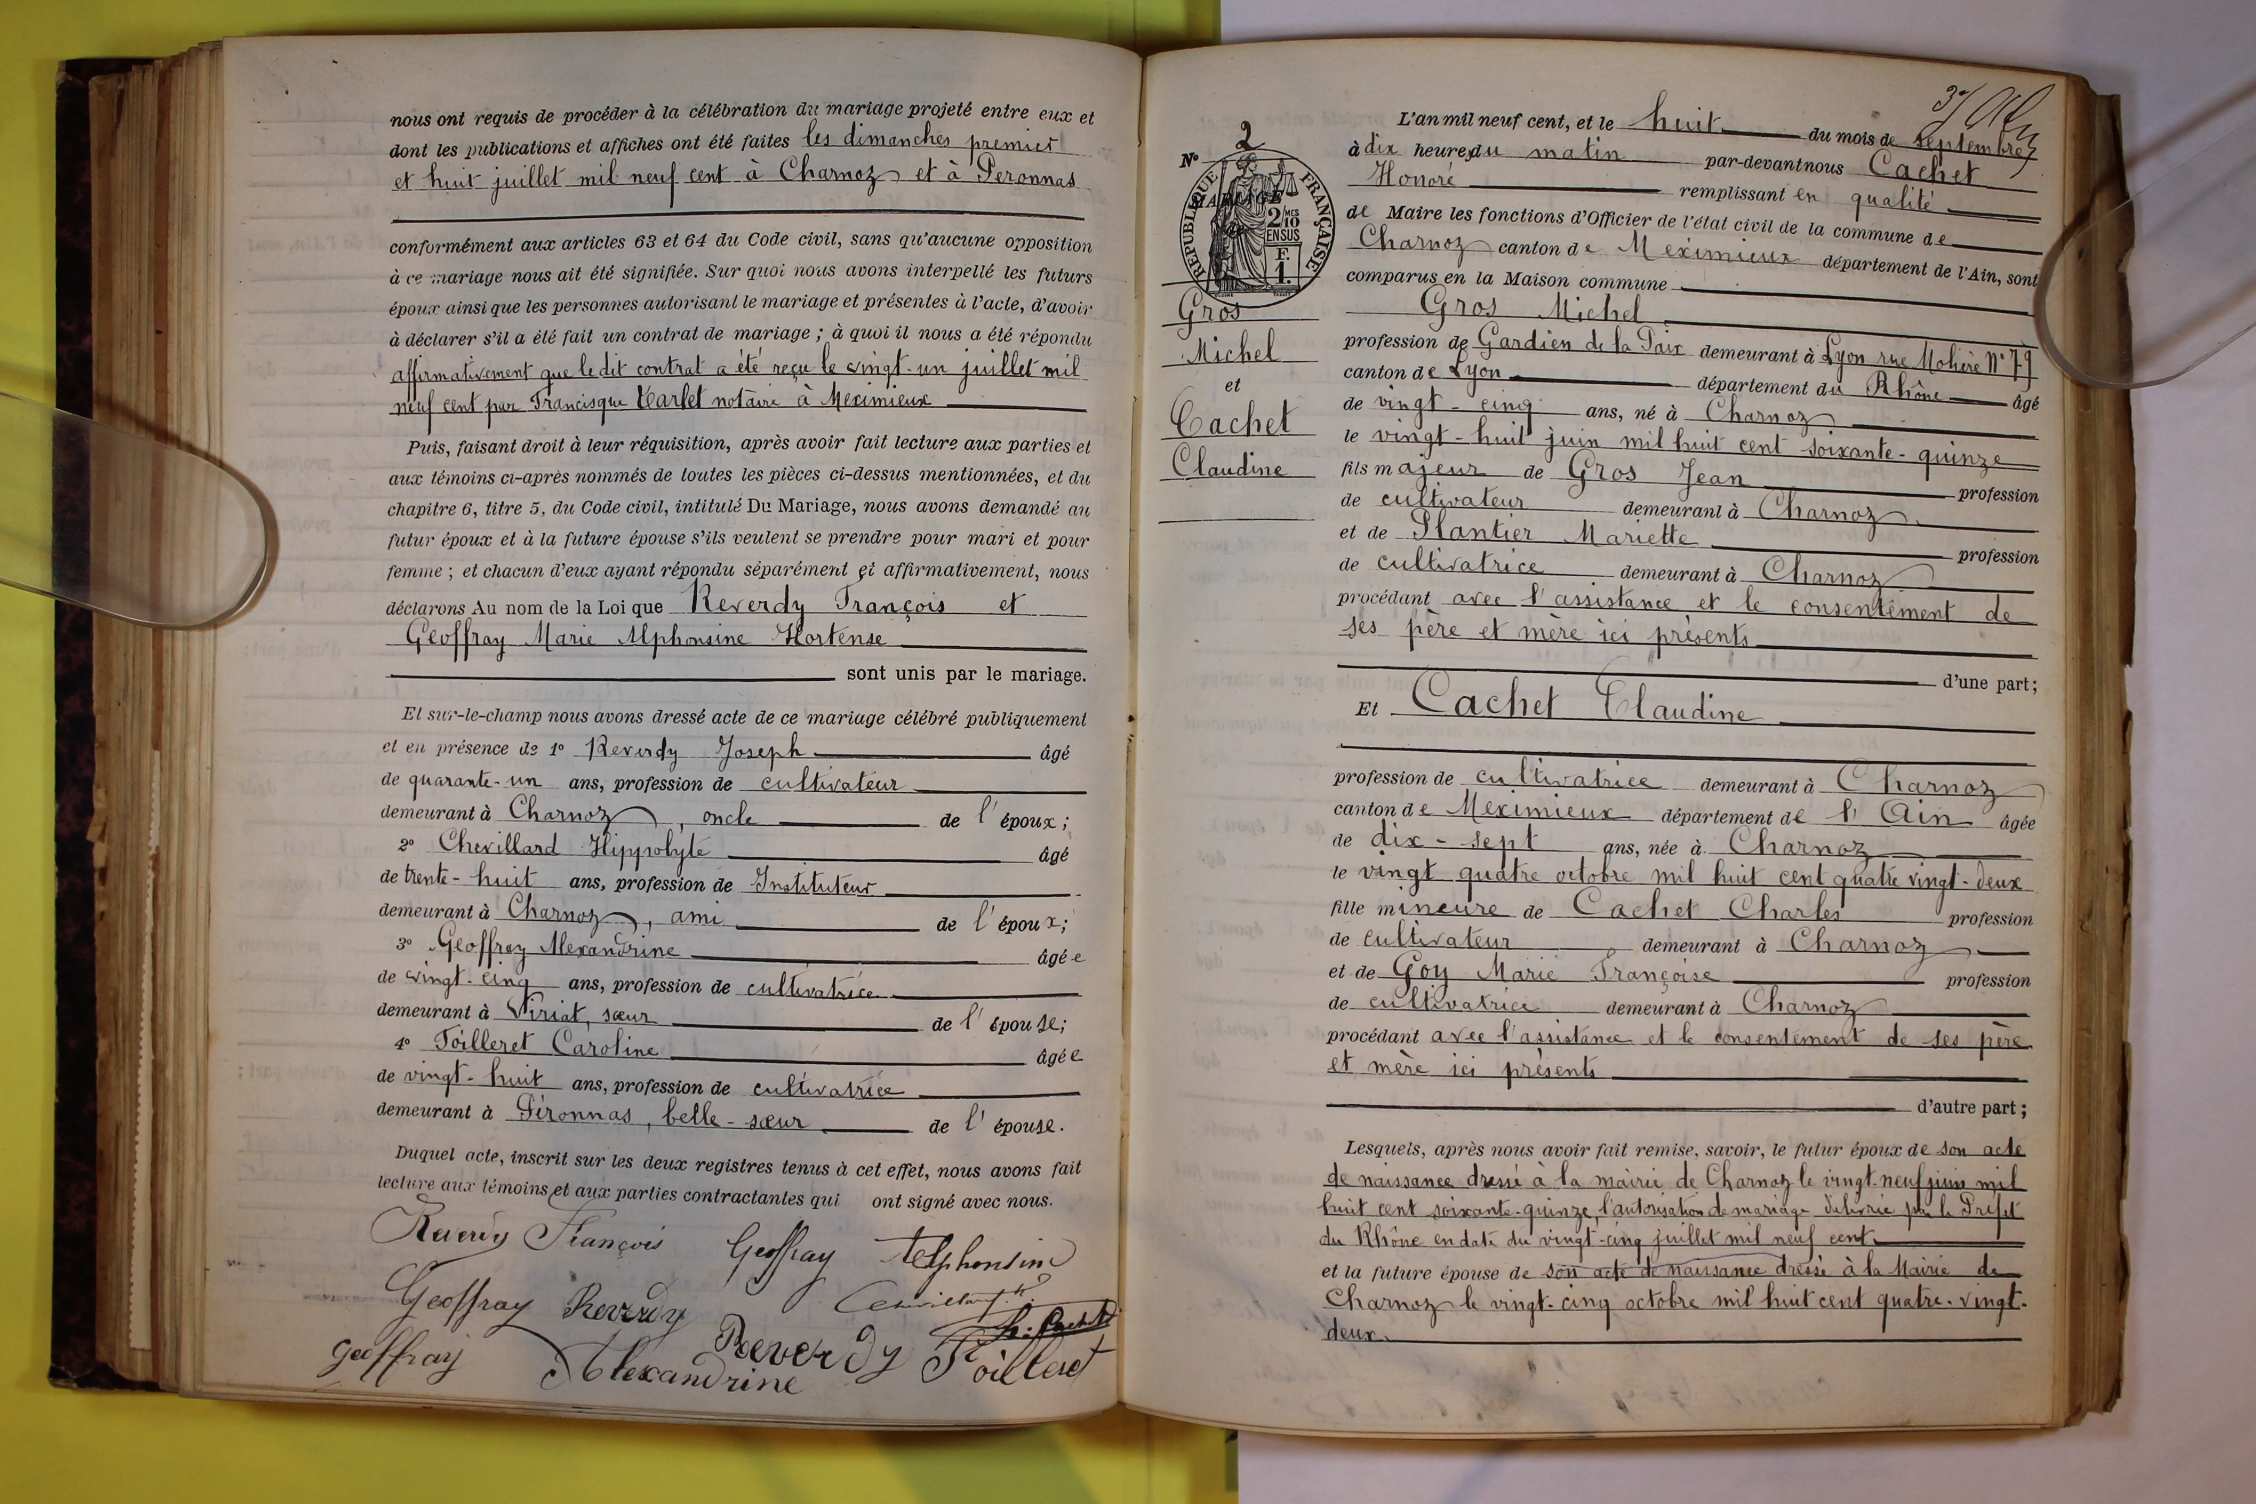 nous ont requis de procéder à la célébration du mariage projeté entre eux et
dont les publications et affiches ont été faites les dimanches premier
et huit juillet mil neuf cent à Charnoz et à Péronnas
conformément aux articles 63 et 64 du Code civil, sans qu'aucune opposition
à ce mariage nous ait été signifiée. Sur quoi nous avons interpellé les futurs
époux ainsi que les personnes autorisant le mariage et présentes à l'acte, d'avoir
à déclarer s'il a été fait un contrat de mariage ; à quoi il nous a été répondu
affirmativement que le dit contrat a été reçu le vingt-un juillet mil
neuf cent par Francisque notaire à Meximieux
Puis, faisant droit à leur réquisition, après avoir fait lecture aux parties et
aux témoins ci-après nommés de toutes les pièces ci-dessus mentionnées, et du
chapitre 6, titre 5, du Code civil, intitulé Du Mariage, nous avons demandé au
futur époux et à la future épouse s'ils veulent se prendre pour mari et pour
femme ; et chacun d'eux ayant répondu séparément et affirmativement, nous
déclarons Au nom de la Loi que Reverdy François et
Geoffray Marie Alphonsine Hortense
sont unis par le mariage.
Et sur-le-champ nous avons dressé acte de ce mariage célébré publiquement
et en présence de 1° Reverdy Joseph âgé
de quarante-un ans, profession de cultivateur
demeurant à Charnoz, oncle de l'époux ;
2° Chevillard Hippolyte âgé
de trente-huit ans, profession de Instituteur
demeurant à Charnoz, ami de l'époux ;
3° Geoffray Alexandrine âgée
de vingt-cinq ans, profession de cultivatrice
demeurant à Viriat, sœur de l'épouse ;
4° Foilleret Caroline âgée
de vingt-huit ans, profession de cultivatrice
demeurant à Péronnas, belle-sœur de l'épouse.
Duquel acte, inscrit sur les deux registres tenus à cet effet, nous avons fait
lecture aux témoins et aux parties contractantes qui ont signé avec nous.
Reverdy François Geoffray Alphonsine
Geoffray Reverdy Chevillard H.
h. Cachet
Geoffray Alexandrine Reverdy Foilleret
N° 2
MARIAGE
RÉPUBLIQUE FRANÇAISE
2/10 MES
EN SUS
F.
1.
Gros
Michel
et
Cachet
Claudine
37
L'an mil neuf cent, et le huit du mois de septembre
à dix heures du matin par-devant nous Cachet
Honoré remplissant en qualité
de Maire les fonctions d'Officier de l'état civil de la commune de
Charnoz canton de Meximieux département de l'Ain, sont
comparus en la Maison commune
Gros Michel
profession de Gardien de la Paix demeurant à Lyon rue Molière N° 79
canton de Lyon département du Rhône âgé
de vingt-cinq ans, né à Charnoz
le vingt-huit juin mil huit cent soixante-quinze
fils majeur de Gros Jean profession
de cultivateur demeurant à Charnoz
et de Plantier Mariette profession
de cultivatrice demeurant à Charnoz
procédant avec l'assistance et le consentement de
ses père et mère ici présents
d'une part ;
Et Cachet Claudine
profession de cultivatrice demeurant à Charnoz
canton de Meximieux département de l'Ain âgée
de dix-sept ans, née à Charnoz
le vingt quatre octobre mil huit cent quatre vingt-deux
fille mineure de Cachet Charles profession
de cultivateur demeurant à Charnoz
et de Goy Marie Françoise profession
de cultivatrice demeurant à Charnoz
procédant avec l'assistance et le consentement de ses père
et mère ici présents
d'autre part ;
Lesquels, après nous avoir fait remise, savoir, le futur époux de son acte
de naissance dressé à la mairie de Charnoz le vingt-neuf juin mil
huit cent soixante-quinze, l'autorisation de mariage délivrée par le Préfet
du Rhône en date du vingt-cinq juillet mil neuf cent
et la future épouse de son acte de naissance dressé à la Mairie de
Charnoz le vingt-cinq octobre mil huit cent quatre-vingt-
deux